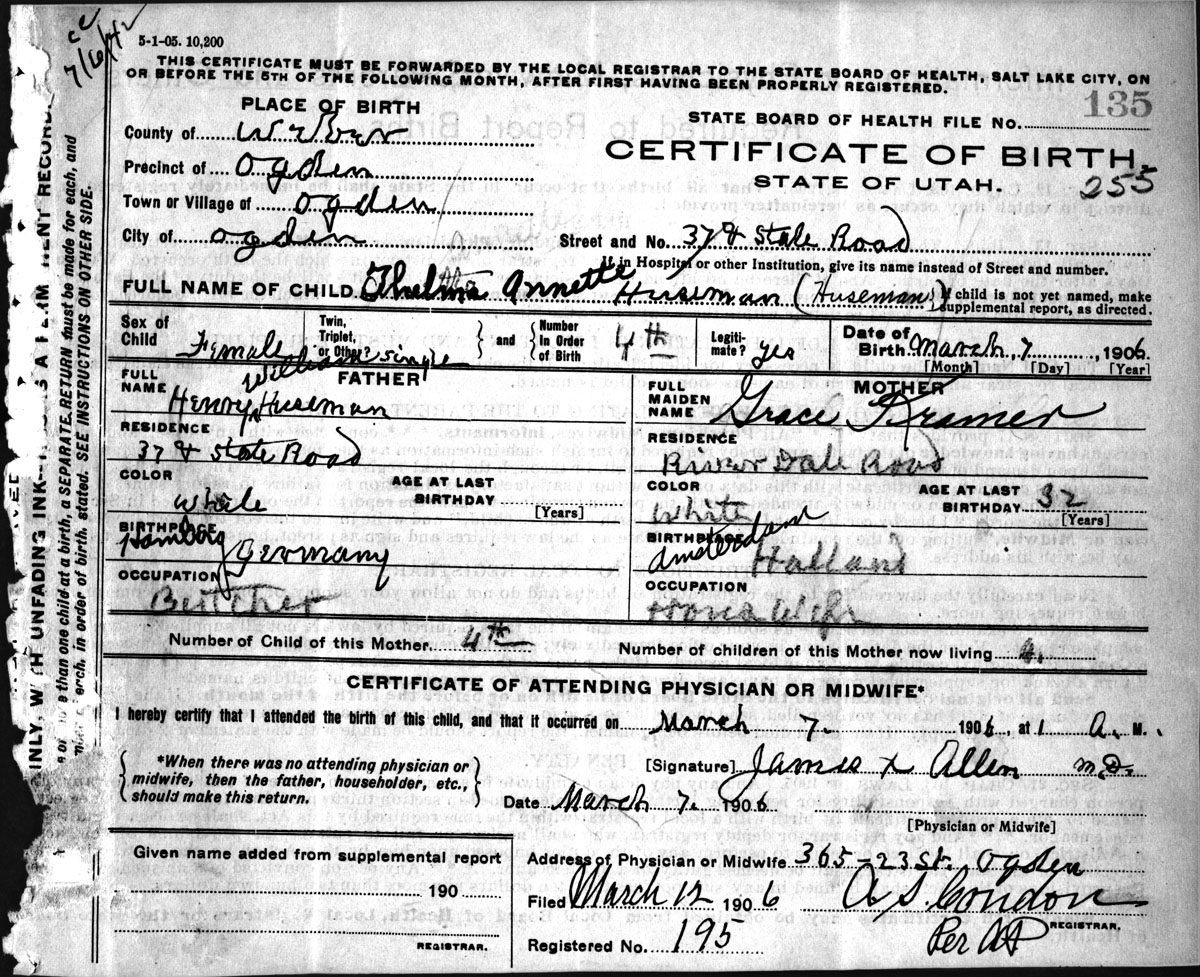 cc
7/6/42
5-1-05. 10,200
THIS CERTIFICATE MUST BE FORWARDED BY THE LOCAL REGISTRAR TO THE STATE BOARD OF HEALTH, SALT LAKE CITY, ON
OR BEFORE THE 5TH OF THE FOLLOWING MONTH, AFTER FIRST HAVING BEEN PROPERLY REGISTERED.
PLACE OF BIRTH
STATE BOARD OF HEALTH FILE NO. 135
County of Weber
CERTIFICATE OF BIRTH.
Precinct of Ogden
STATE OF UTAH. 255
Town or Village of Ogden
City of Ogden Street and No. 37 & State Road
If in Hospital or other Institution, give its name instead of Street and number.
FULL NAME OF CHILD Thelma Annette Huseman (Huseman) If child is not yet named, make supplemental report, as directed.
Sex of Child Female Twin, Triplet, or Other? single and Number In Order of Birth 4th Legitimate? yes Date of Birth March 7 1906
[Month] [Day] [Year]
FATHER
FULL NAME Henry William Huseman
RESIDENCE
37 & State Road
COLOR White AGE AT LAST BIRTHDAY [Years]
BIRTHPLACE Hamburg Germany
OCCUPATION
Butcher
MOTHER
FULL MAIDEN NAME Grace Kramer
RESIDENCE
River Dale Road
COLOR White AGE AT LAST BIRTHDAY 32 [Years]
BIRTHPLACE Amsterdam Holland
OCCUPATION
House Wife
Number of Child of this Mother 4th Number of children of this Mother now living 4.
CERTIFICATE OF ATTENDING PHYSICIAN OR MIDWIFE*
I hereby certify that I attended the birth of this child, and that it occurred on March 7. 1906, at 1 A. M.
*When there was no attending physician or midwife, then the father, householder, etc., should make this return.
[Signature] James X Allen M.D.
Date March 7. 1906. [Physician or Midwife]
Given name added from supplemental report
190
REGISTRAR.
Address of Physician or Midwife 365-23 St. Ogden
Filed March 12 1906 A S Condon
REGISTRAR.
Per AP
Registered No. 195
INLY, WITH UNFADING INK
IS A PERMANENT RECORD
than one child at a birth, a SEPARATE RETURN must be made for each, and
in order of birth, stated. SEE INSTRUCTIONS ON OTHER SIDE.